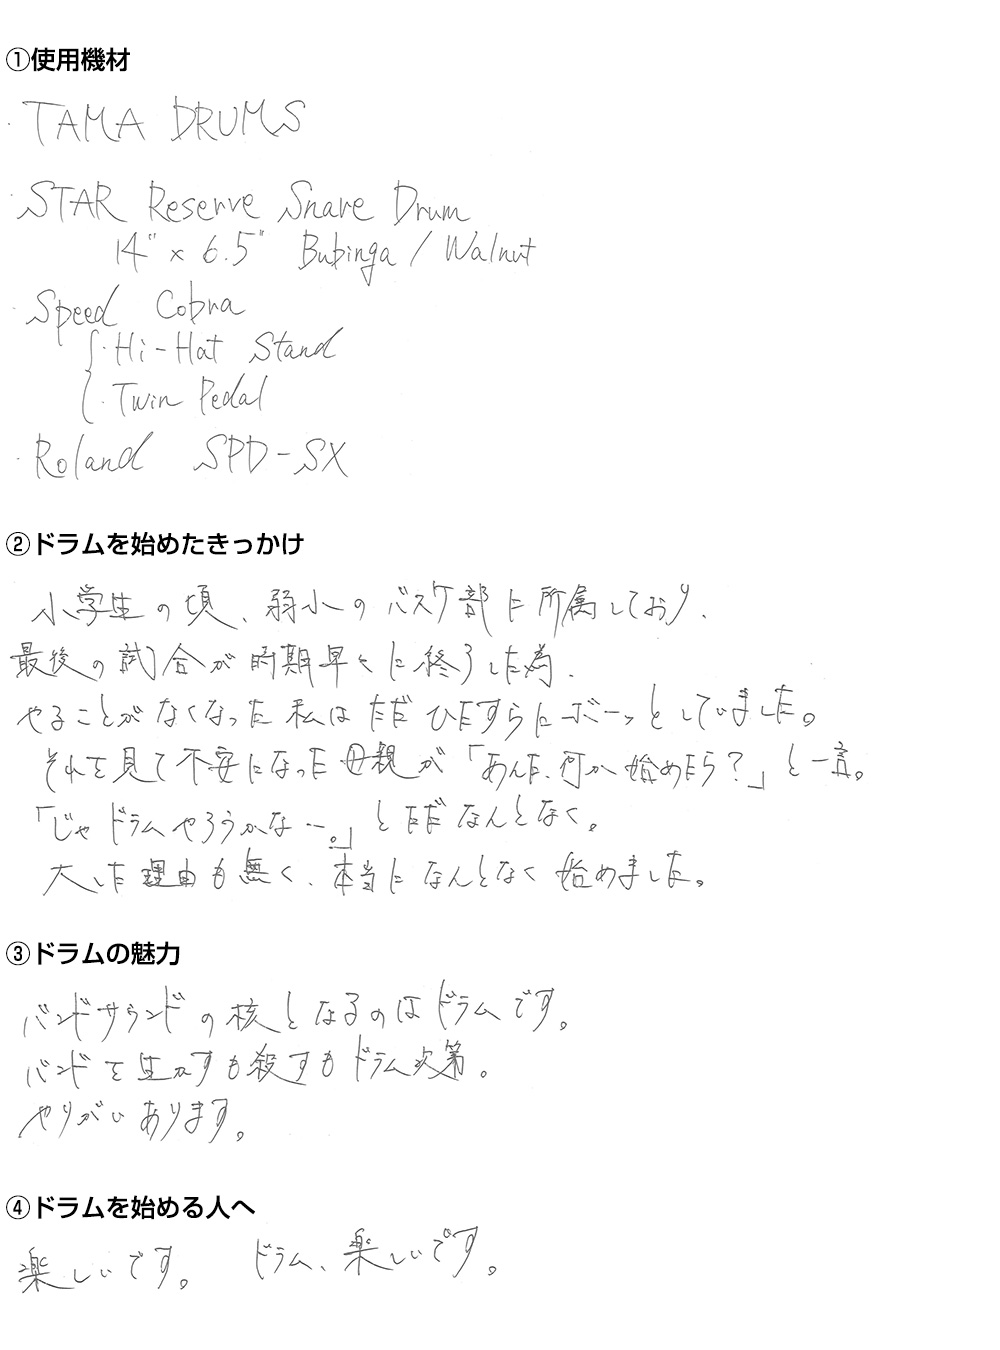 ①使用機材
・TAMA DRUMS
・STAR Reserve Snare Drum
14" × 6.5" Bubinga / Walnut
・Speed Cobra
・Hi-Hat Stand
・Twin Pedal
・Roland SPD-SX
②ドラムを始めたきっかけ
小学生の頃、弱小のバスケ部に所属しており、
最後の試合が時期早々に終了した為、
やることがなくなった私はただひたすらにボーッとしていました。
それを見て不安になった母親が「あんた、何か始めたら？」と一言。
「じゃドラムやろうかなー。」とただなんとなく。
大した理由も無く、本当になんとなく始めました。
③ドラムの魅力
バンドサウンドの核となるのはドラムです。
バンドを生かすも殺すもドラム次第。
やりがいあります。
④ドラムを始める人へ
楽しいです。 ドラム、楽しいです。